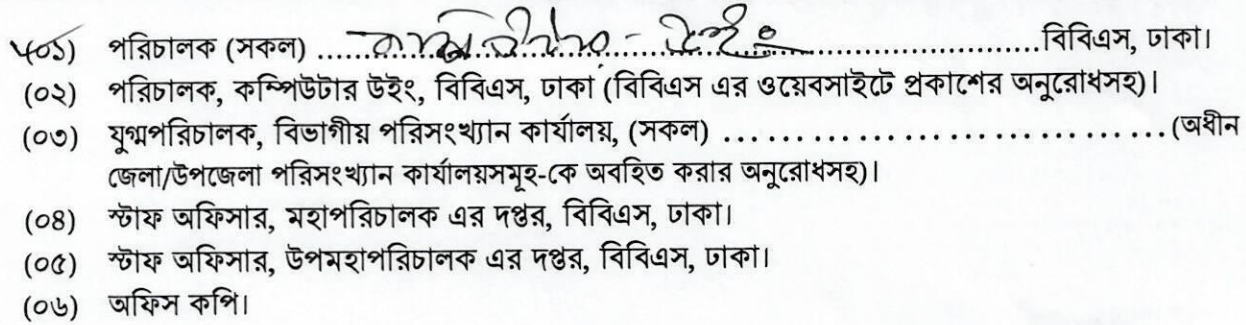 (০১) পরিচালক (সকল) ....কম্পিউটার - উইং....বিবিএস, ঢাকা।
(০২) পরিচালক, কম্পিউটার উইং, বিবিএস, ঢাকা (বিবিএস এর ওয়েবসাইটে প্রকাশের অনুরোধসহ)।
(০৩) যুগ্মপরিচালক, বিভাগীয় পরিসংখ্যান কার্যালয়, (সকল) ....................................(অধীন
জেলা/উপজেলা পরিসংখ্যান কার্যালয়সমূহ-কে অবহিত করার অনুরোধসহ)।
(০৪) স্টাফ অফিসার, মহাপরিচালক এর দপ্তর, বিবিএস, ঢাকা।
(০৫) স্টাফ অফিসার, উপমহাপরিচালক এর দপ্তর, বিবিএস, ঢাকা।
(০৬) অফিস কপি।